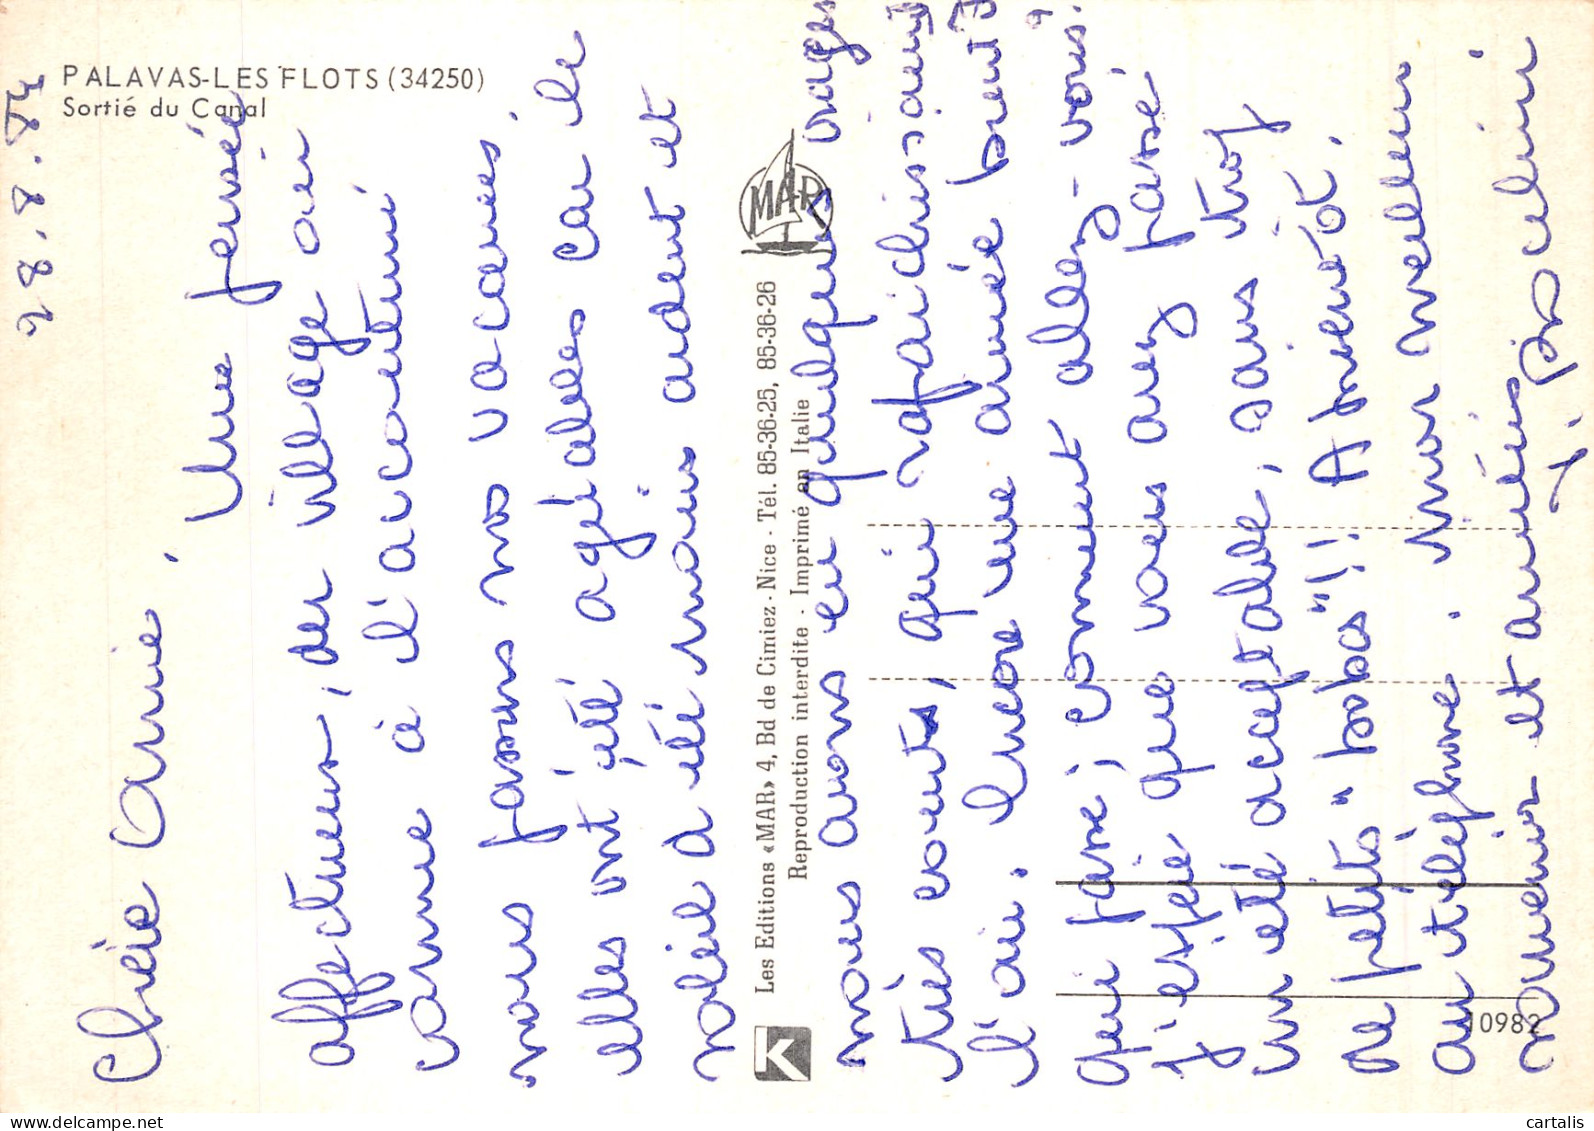 PALAVAS-LES FLOTS (34250)
Sortié du Canal
28.8.84
Chère Annie, Une pensée
affectueuse, du village où
comme à l'accoutumé
nous passons nos vacances.
elles ont été agréables car le
soleil a été moins ardent et
nous avons eu quelques orages
très courts, qui rafraichissaient
l'air. Encore une année bientôt
qui passe; comment allez-vous.
J'espère que vous avez passé
un été acceptable, sans trop
de petits "bobos"!! A bientôt.
au téléphone. Mon meilleur
souvenir et amitiés
Les Editions «MAR» 4, Bd de Cimiez - Nice - Tél. 85-36-25, 85-36-26
Reproduction interdite - Imprimé en Italie
MAR
K
10982
cartalis
www.delcampe.net